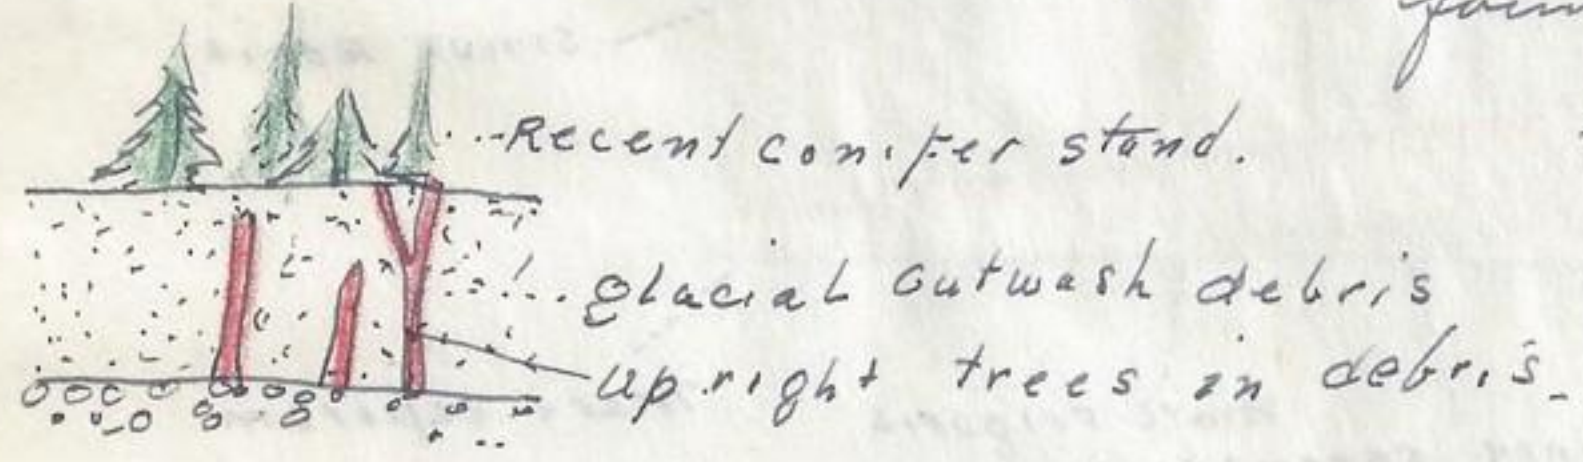 Recent conifer stand.
glacial outwash debris
upright trees in debris.